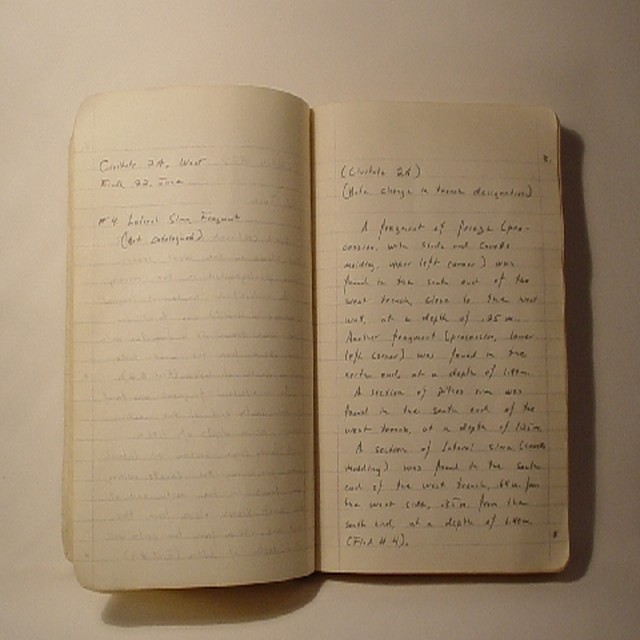 Civitate 2A, West
Finds 22. June
# 4 Lateral Sima Fragment
(Not catalogued)
8.
(Civitate 2A)
(Note change in trench designation)
A fragment of frieze (pro-
cession, with sirds and cavetto
molding, upper left corner) was
found in the south end of the
west trench, close to the west
wall, at a depth of .95 m.
Another fragment (procession, lower
left corner) was found in the
end, at a depth of 1.40m.
A section of pithos rim was
found in the south end of the
west trench, at a depth of 1.25m.
A section of lateral sima (cavetto
molding) was found in the south
end of the west trench, from
the west side, .35m. from the
south end, at a depth of 1.40m.
(Find # 4).